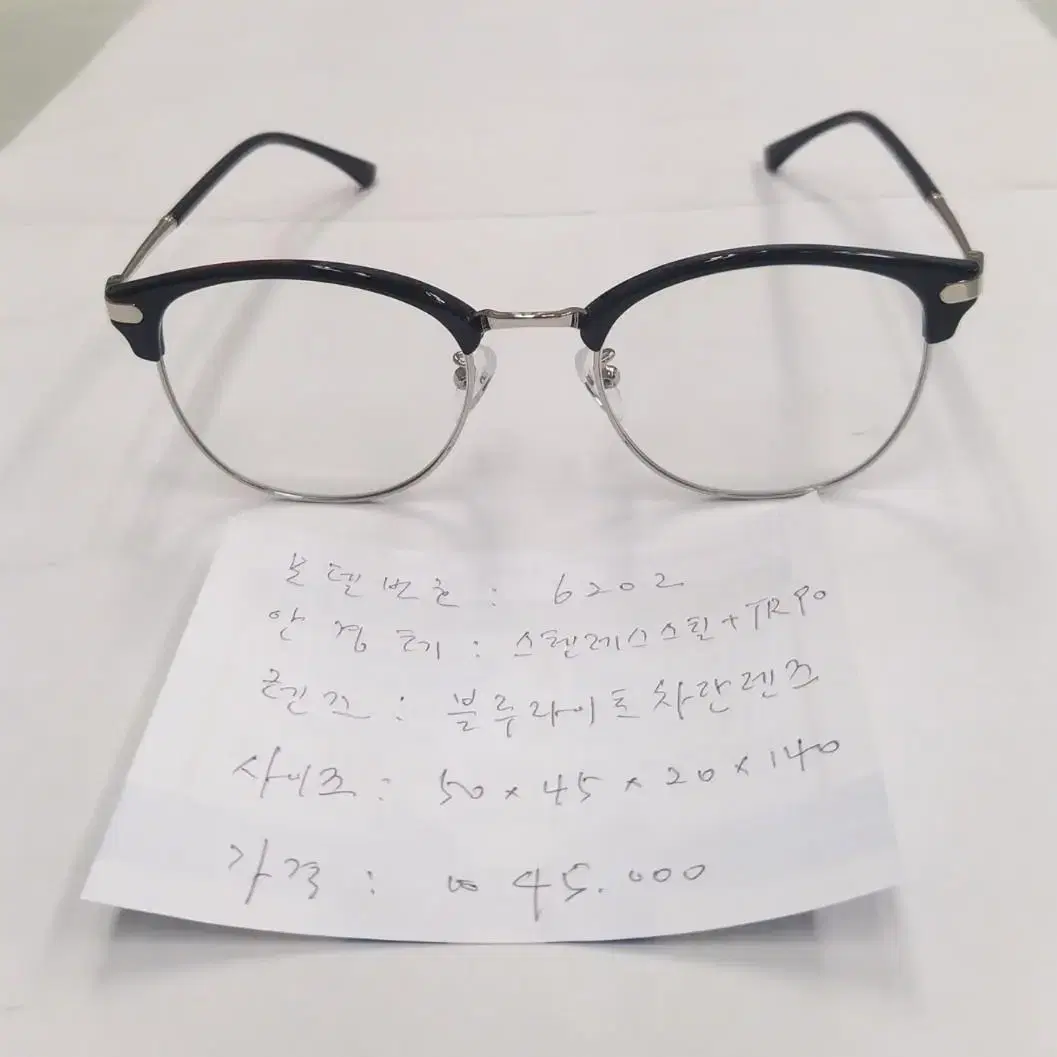 모델번호 : 6202
안경테 : 스텐레스스틸+TR90
렌즈 : 블루라이트차단렌즈
사이즈 : 50×45×20×140
가격 : ₩45.000